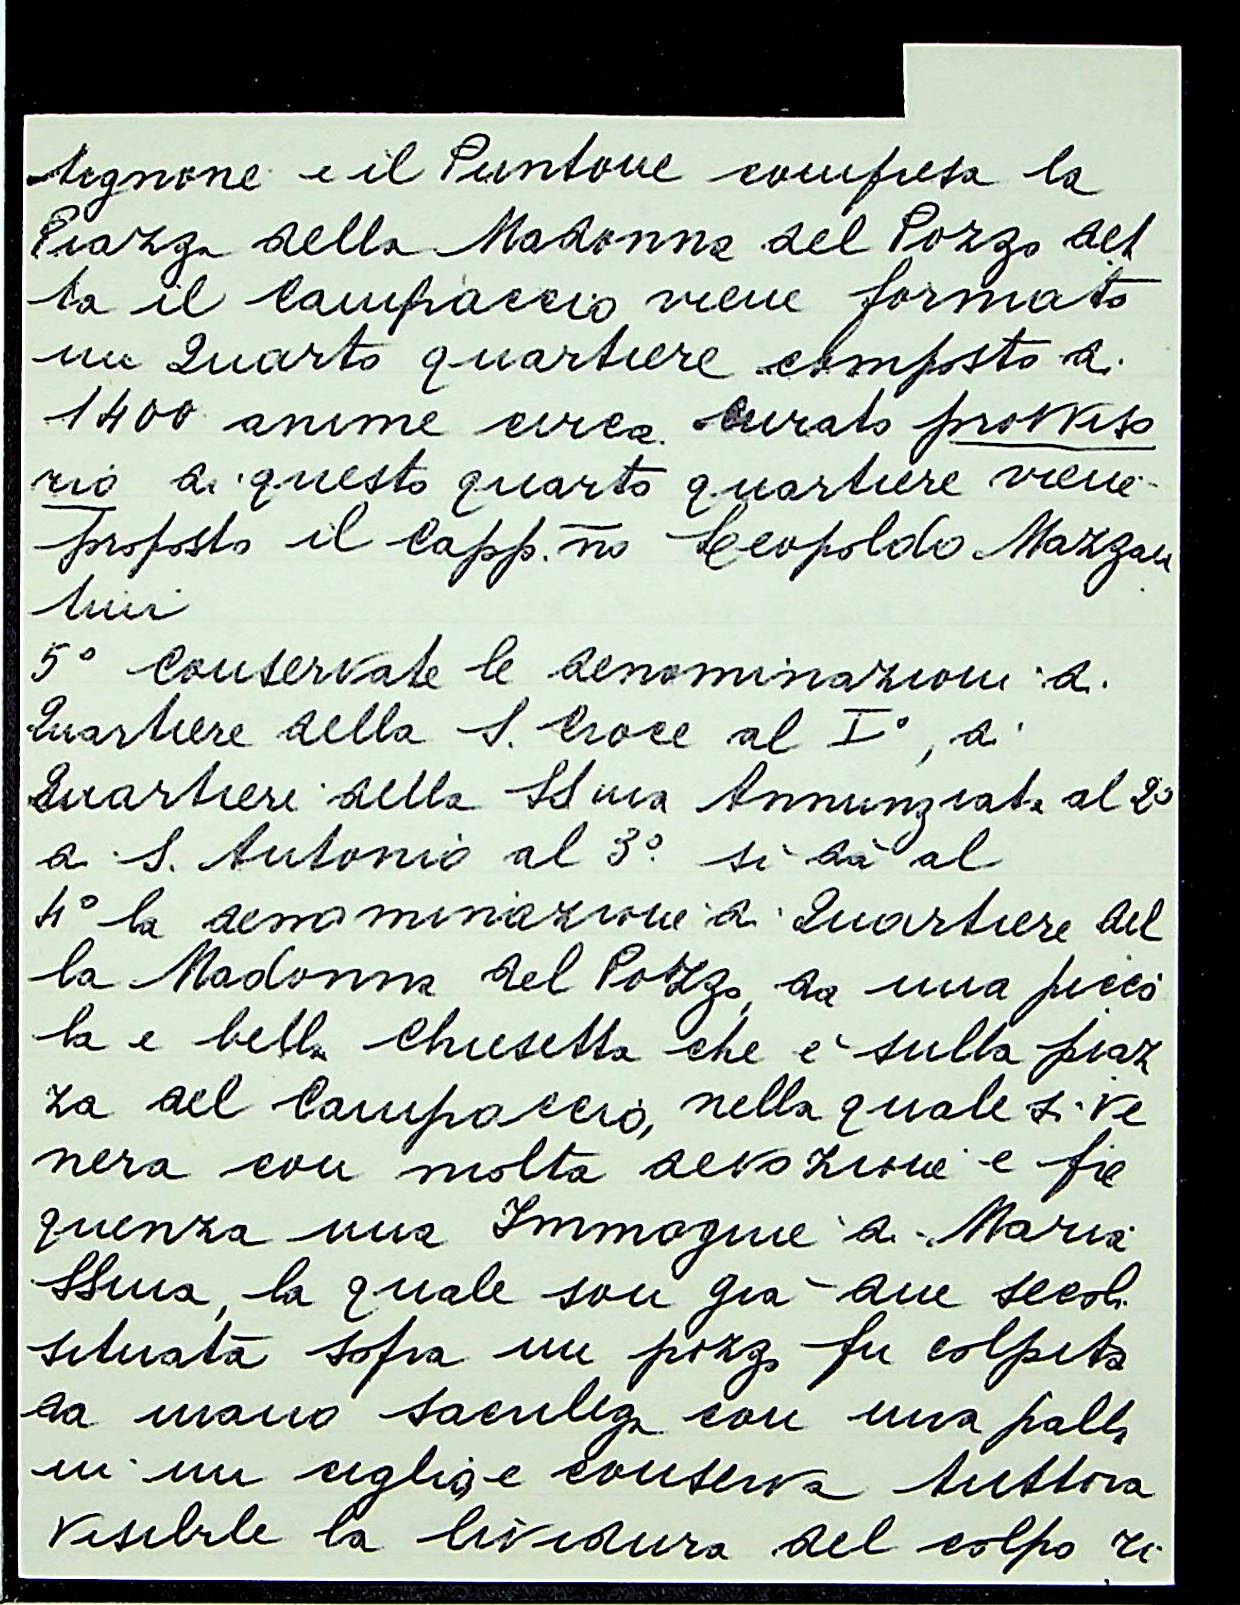 tignone e il Puntone compresa la
Piazza della Madonna del Pozzo det
ta il Campaccio viene formato
un Quarto quartiere composto di
1400 anime circa. Curato provviso
rio di questo quarto quartiere viene
proposto il Capp.no Leopoldo Mazzan
tini
5° Conservate le denominazioni di
Quartiere della S. Croce al I°, di
Quartiere della SSma Annunziata al 2°
di S. Antonio al 3° si dà al
4° la denominazione di Quartiere del
la Madonna del Pozzo, da una picco
la e bella Chiesetta che è sulla piaz
za del Campaccio, nella quale si ve
nera con molta devozione e fre
quenza una Immagine di Maria
SSma, la quale son già due secoli
situata sopra un pozzo fu colpita
da mano sacrilega con una palla
in un ciglio, e conserva tuttora
visibile la lividura del colpo ri